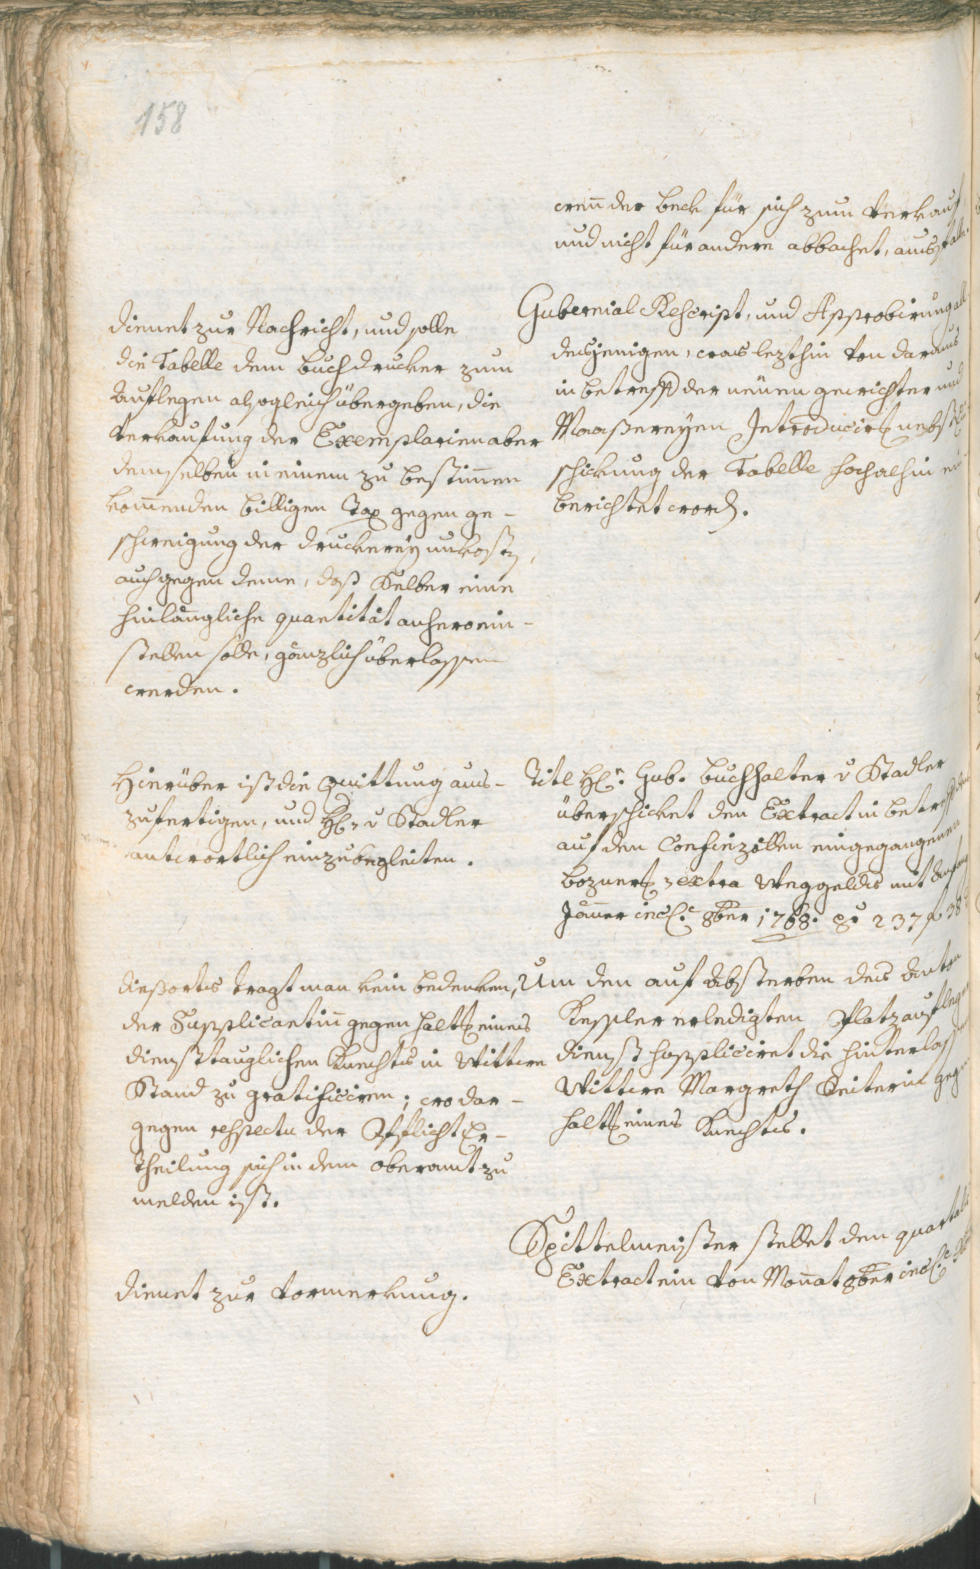 158
wenn der beck für sich zum Verkauf
und nicht für andere abbachet, aus
Dienet zur Nachricht, und solle
die Tabelle dem buchdrucker zum
Auflegen alsogleich übergeben, die
Verkaufung der Exemplarien aber
demselben in einem zu bestimen
komenden billigen Tax gegen ge-
schweigung der druckereÿ unkosten,
auch gegen deme, daß Selber eine
hinlängliche quantität anhero ein-
stellen solle, gänzlich überlassen
werden.
Gubernial Rescript, und Approbirung all
desjenigen, was lezthin von daraus
in betreff der neüen gewichter und
Maaßereÿen Introducirung nebst
schickung der Tabelle hochalhin
berichtet word.
Hierüber ist die quittung aus-
zufertigen, und H: v Stadler
antwortlich einzubegleiten.
Titl H: Gub. buchhalter v Stadler
überschicket den Extract in betreff
auf den Confinzöllen eingegangenen
bozner extra Weggelds mit
Jäner incl: 8ber 1768. 237 f 38
dießorts tragt man kein bedenken,
der Supplicantin gegen halt eines
diensttauglichen Knechts in Wittwe
Stand zu gratificiren; wo dar-
gegen respectu der Pflicht Er-
theilung sich in dem oberamt zu
melden ist.
Um den auf Absterben des Anton
Keppler erledigten Platzaufleger
dienst suppliciret die hinterlass
Wittwe Margreth Reiterin gegen
halt eines Knechts.
Dienet zur Vormerkung.
Spittelmeister stellet den quartal
Extract ein von Monat 8ber incl: